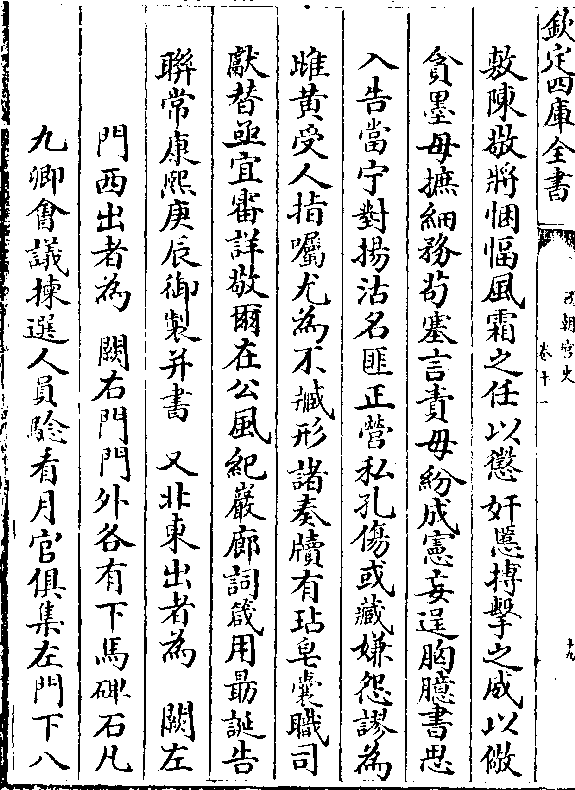 欽定四庫全書
國朝宮史
卷十一
十九
敷陳敬將悃愊風霜之任以懲奸慝摶擊之威以儆
貪墨毋摭細務苟塞言責毋紛成憲妄逞胸臆書思
入告當宁對揚沽名匪正營私孔傷或藏嫌怨謬為
雌黄受人指囑尤為不臧形諸奏牘有玷皂囊職司
獻替亟宜審詳敬爾在公風紀巖廊詞箴用勗誕告
聯常康熙庚辰御製并書 又北東出者為 闕左
門西出者為 闕右門門外各有下馬碑石凡
九卿會議揀選人員騐看月官俱集左門下八